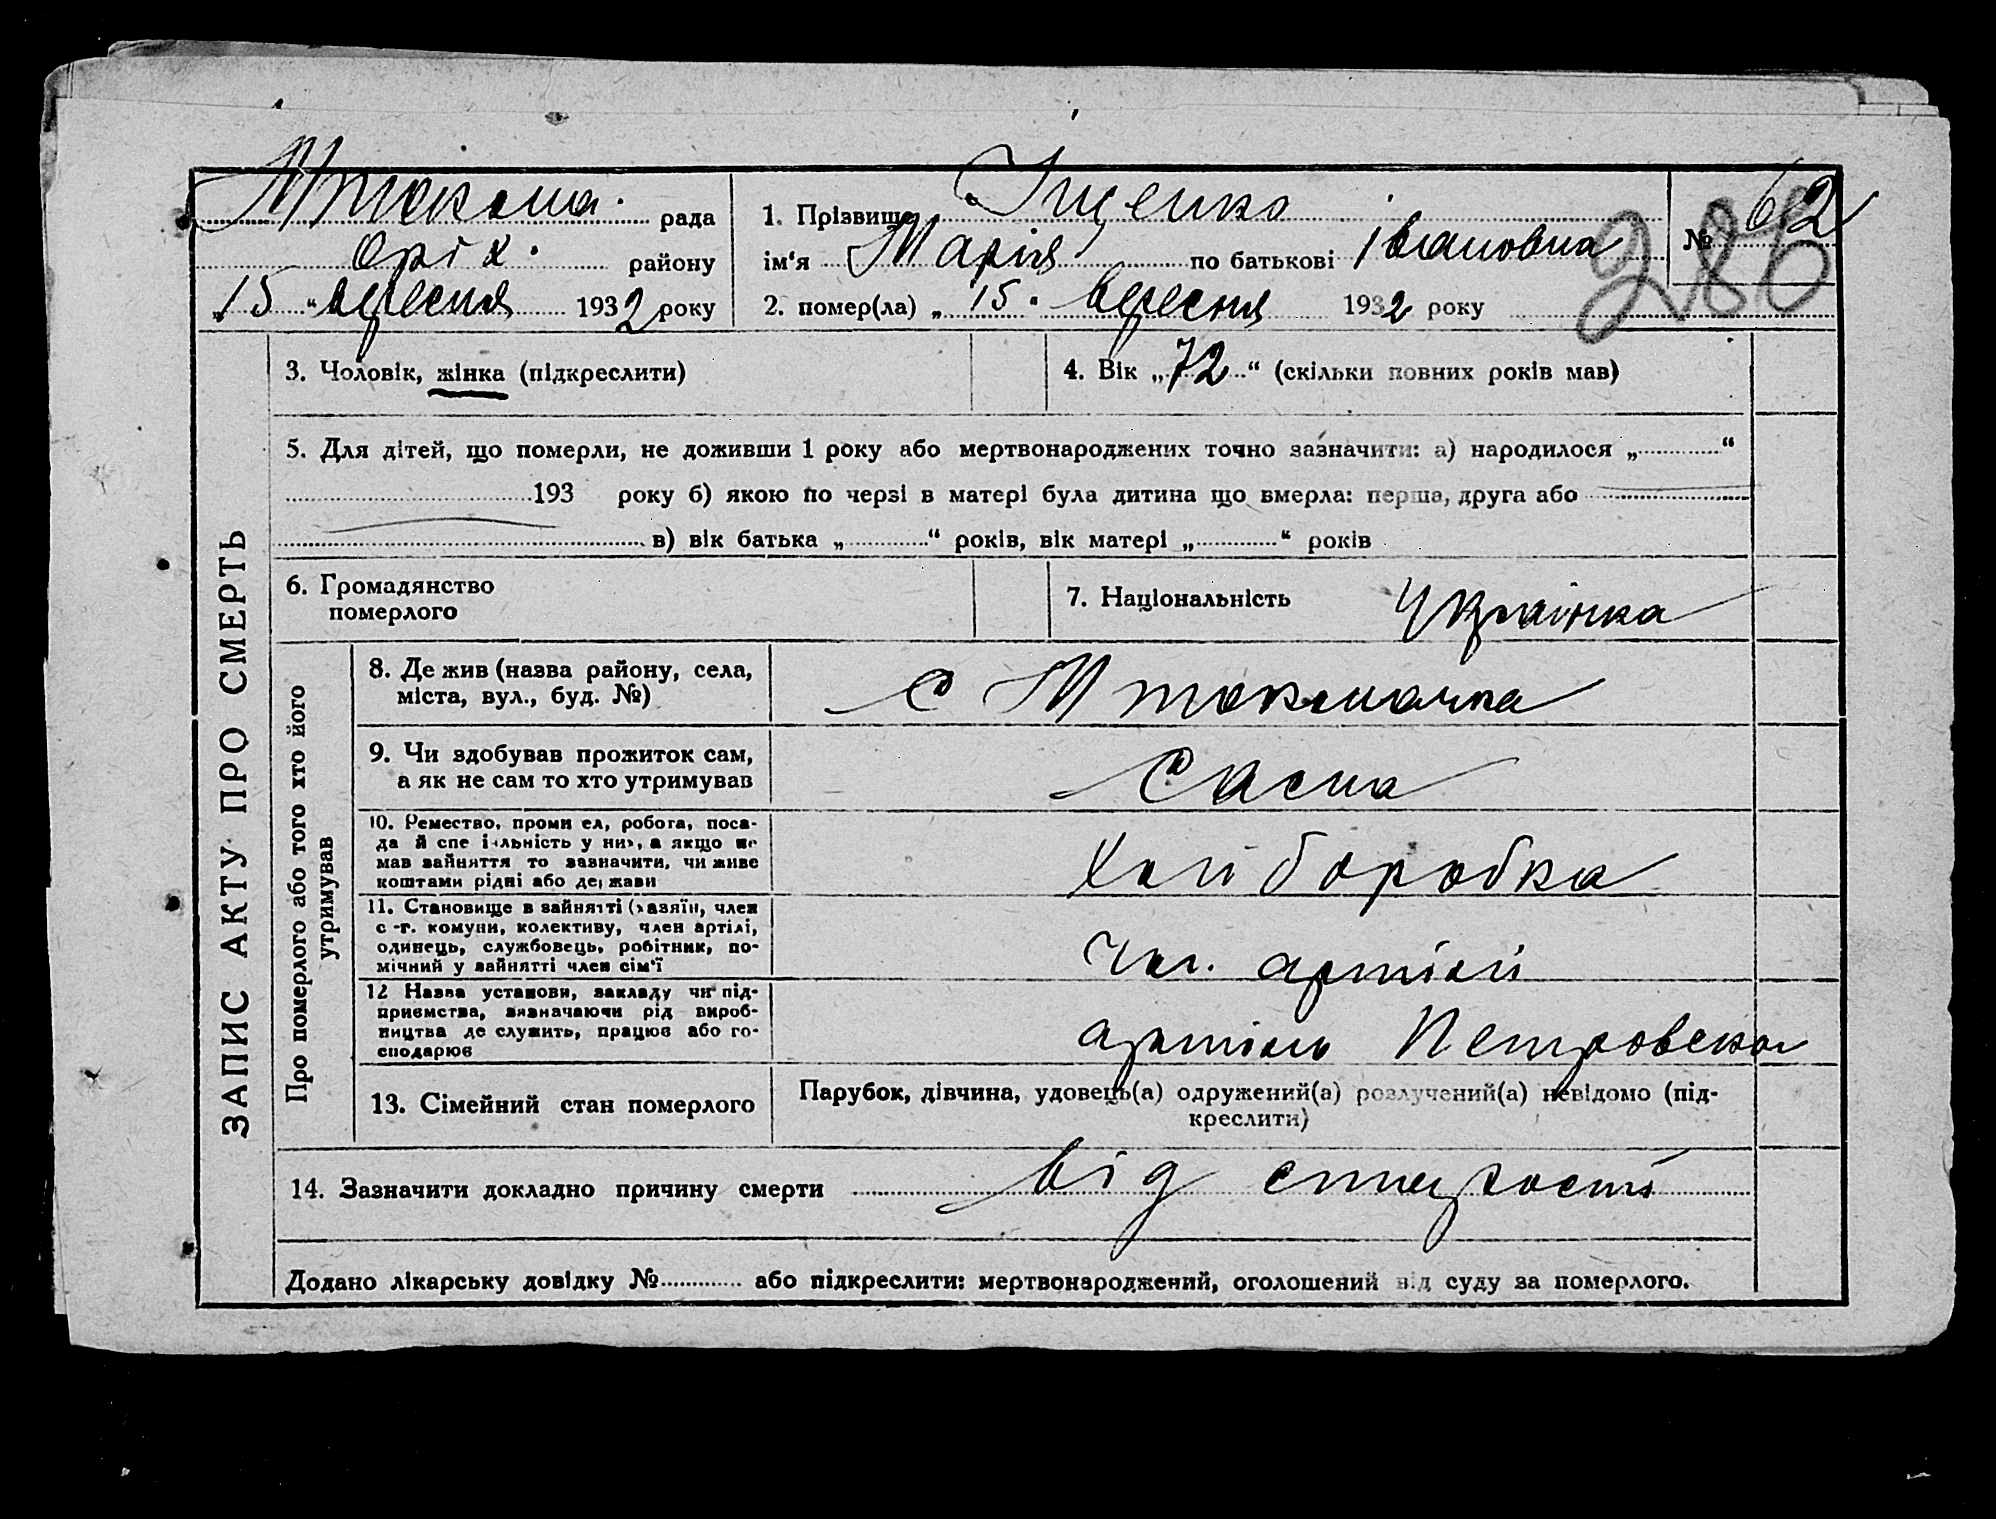 Мтокома. рада
Оріх. району
„15“ вересня 1932 року
1. Прізвище Іщенко
ім'я Марія по батькові Івановна
2. помер(ла) „15“ вересня 1932 року
№ 62
286
ЗАПИС АКТУ ПРО СМЕРТЬ
3. Чоловік, жінка (підкреслити)
4. Вік „72“ (скільки повних років мав)
5. Для дітей, що померли, не доживши 1 року або мертвонароджених точно зазначити: а) народилося „............“
193 року б) якою по черзі в матері була дитина що вмерла: перша, друга або
в) вік батька „............“ років, вік матері „............“ років
6. Громадянство
померлого
7. Національність Українка
Про померлого або того хто його
утримував
8. Де жив (назва району, села,
міста, вул., буд. №)
с Мтокмачка
9. Чи здобував прожиток сам,
а як не сам то хто утримував
Сама
10. Ремество, промисел, робота, поса-
да й спеціяльність у них, а якщо не
мав зайняття то зазначити, чи живе
коштами рідні або держави
Хлиборобка
11. Становище в зайнятті (хазяїн, член
с.-г. комуни, колективу, член артілі,
одинець, службовець, робітник, по-
мічний у зайнятті член сім'ї
Чл. артілі
12 Назва установи, закладу чи під-
приємства, зазначаючи рід вироб-
ництва де служить, працює або го-
сподарює
артіль Петровского
13. Сімейний стан померлого
Парубок, дівчина, удовець(а) одружений(а) розлучений(а) невідомо (під-
креслити)
14. Зазначити докладно причину смерти від старости
Додано лікарську довідку №............ або підкреслити: мертвонароджений, оголошений від суду за померлого.